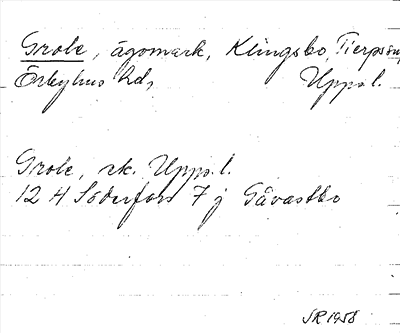 Grobe, ägomark, Klingsbo, Tierps
Örbyhus hd, Upps. l.
Grobe, ek. Upps. l.
12 H Söderfors 7 j Gåvastbo
SR 1958